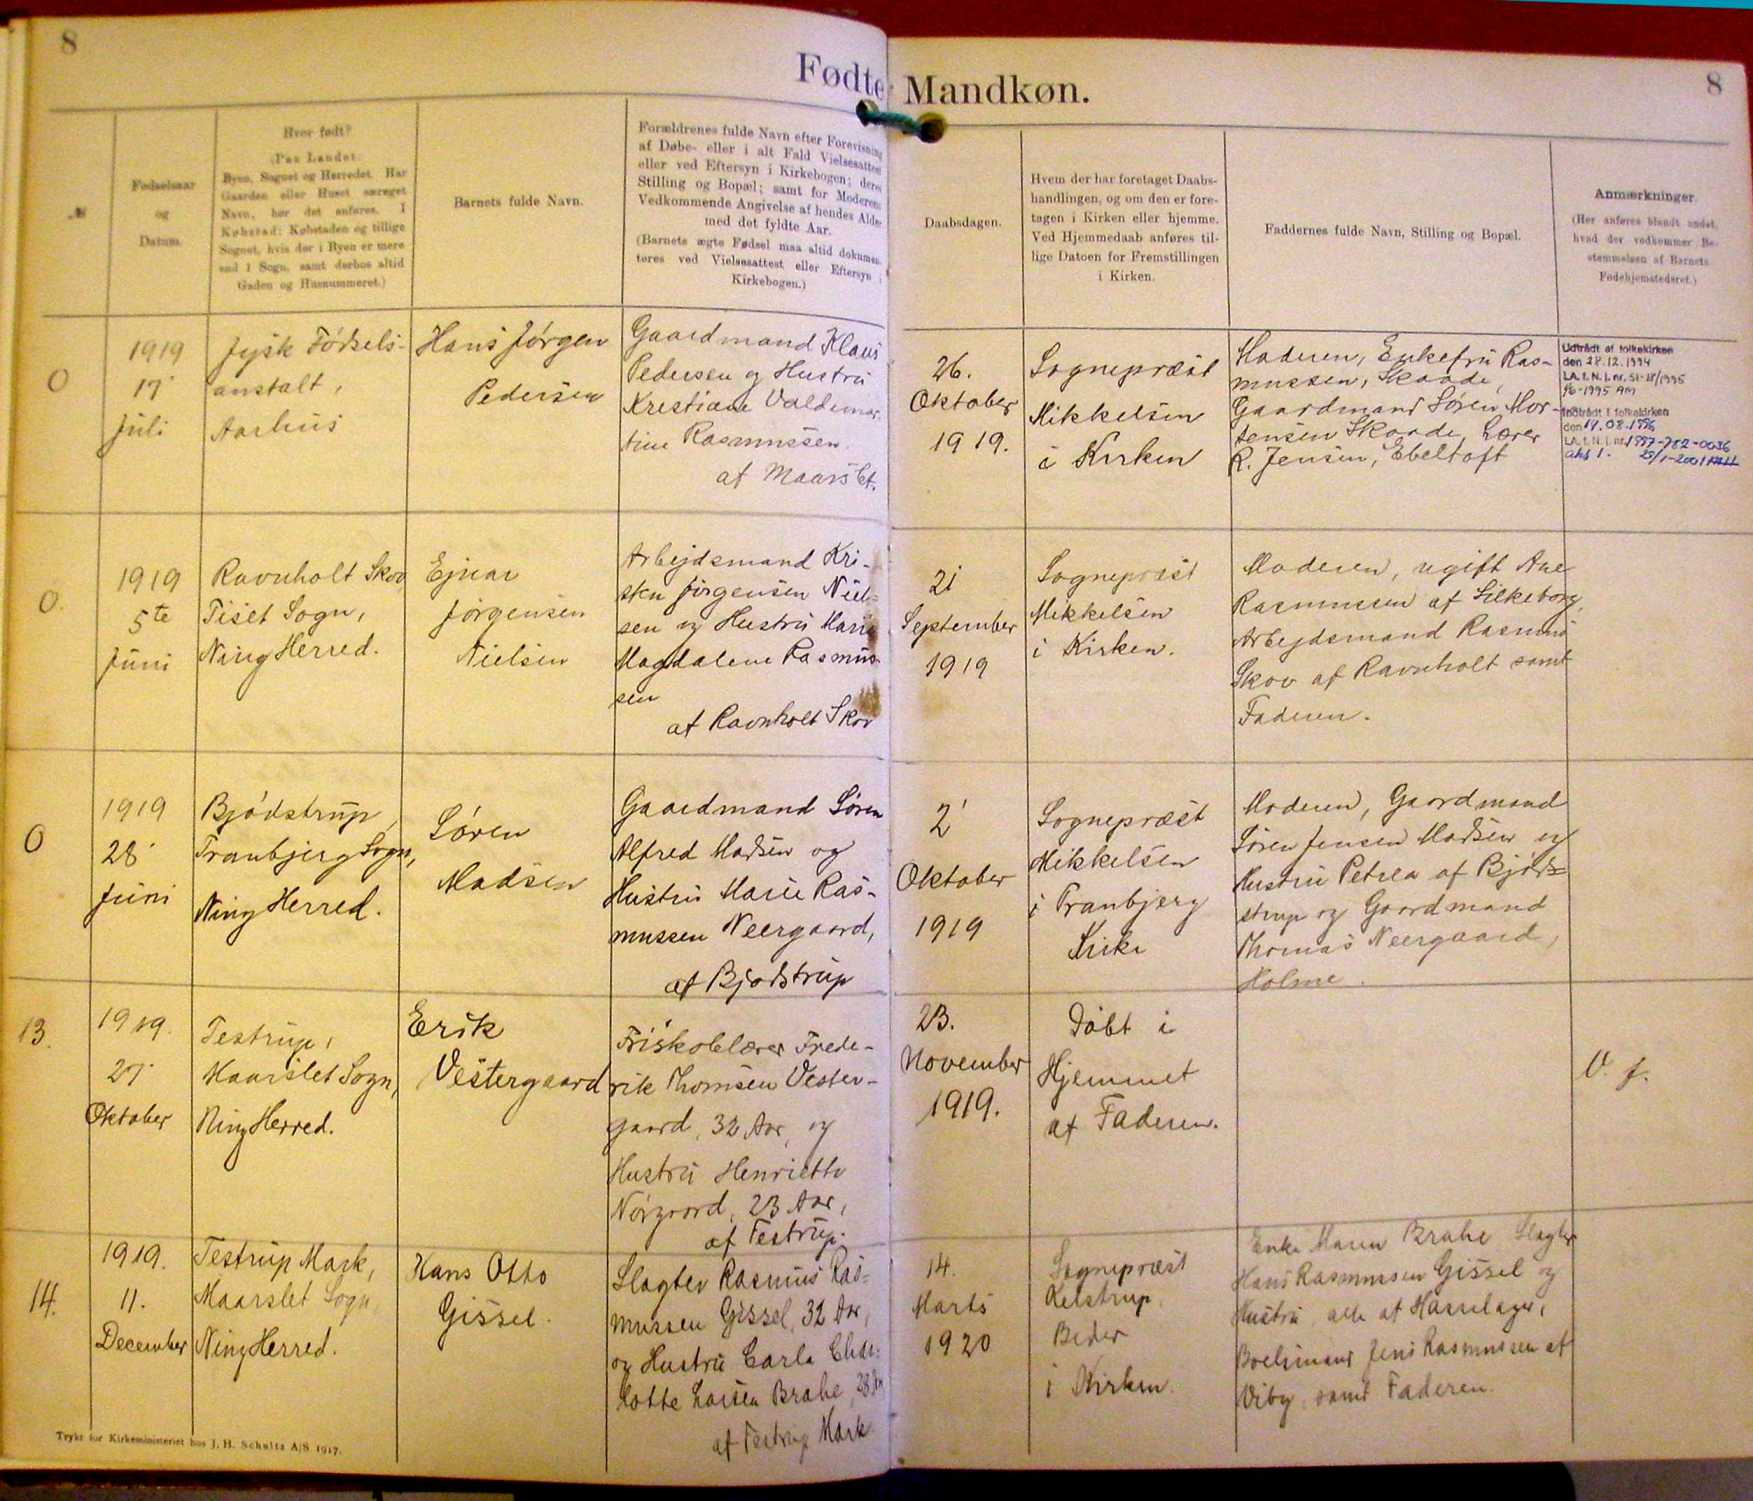 8
Fødte Mandkøn.
8
№
Fødselsaar
og
Datum.
Hvor født?
(Paa Landet:
Byen, Sognet og Herredet. Har
Gaarden eller Huset særeget
Navn, bør det anføres. I
Købstad: Købstaden og tillige
Sognet, hvis der i Byen er mere
end 1 Sogn, samt derhos altid
Gaden og Husnummeret.)
Barnets fulde Navn.
Forældrenes fulde Navn efter Forevisning
af Døbe- eller i alt Fald Vielsesattest
eller ved Eftersyn i Kirkebogen; deres
Stilling og Bopæl; samt for Moderens
Vedkommende Angivelse af hendes Alder
med det fyldte Aar.
(Barnets ægte Fødsel maa altid dokumen-
teres ved Vielsesattest eller Eftersyn i
Kirkebogen.)
Daabsdagen.
Hvem der har foretaget Daabs-
handlingen, og om den er fore-
tagen i Kirken eller hjemme.
Ved Hjemmedaab anføres til-
lige Datoen for Fremstillingen
i Kirken.
Faddernes fulde Navn, Stilling og Bopæl.
Anmærkninger.
(Her anføres blandt andet,
hvad der vedkommer Be-
stemmelsen af Barnets
Fødehjemstedsret.)
0
1919
17
Juli
Jysk Fødsels-
anstalt,
Aarhus
Hans Jørgen
Pedersen
Gaardmand Klaus
Pedersen og Hustru
Krestiane Valdemar-
tine Rasmussen.
af Maarslet.
26.
Oktober
1919.
Sognepræst
Mikkelsen
i Kirken
Moderen, Enkefru Ras-
mussen, Skaade,
Gaardmand Søren Mor-
tensen Skaade, Lærer
R. Jensen, Ebeltoft
Udtrådt af folkekirken
den 28.12.1994
Indtrådt i folkekirken
den 19.08.1996
LA. f. N. j. nr. 1997-782-0036
0.
1919
5te
Juni
Ravnholt Skov
Tiset Sogn,
Ning Herred.
Ejnar
Jørgensen
Nielsen
Arbejdsmand Kri-
sten Jörgensen Niel-
sen og Hustru Marie
Magdalene Rasmus-
sen
af Ravnholt Skov
21
September
1919
Sognepræst
Mikkelsen
i Kirken.
Moderen, ugift Ane
Rasmussen af Silkeborg,
Arbejdsmand Rasmus
Skov af Ravnholt samt
Faderen.
0
1919
28
Juni
Bjødstrup,
Tranbjerg Sogn,
Ning Herred.
Søren
Madsen
Gaardmand Søren
Alfred Madsen og
Hustru Marie Ras-
mussen Neergaard,
af Bjødstrup
2
Oktober
1919
Sognepræst
Mikkelsen
i Tranbjerg
Kirke
Moderen, Gaardmand
Søren Jensen Madsen og
Hustru Petrea af Bjød-
strup og Gaardmand
Thomas Neergaard,
Holme.
13.
1919.
27
Oktober
Testrup,
Maarslet Sogn,
Ning Herred.
Erik
Vestergaard
Friskolelærer Frede-
rik Thomsen Vester-
gaard, 32 Aar, og
Hustru Henriette
Nörgaard, 23 Aar,
af Testrup.
23.
November
1919.
Døbt i
Hjemmet
af Faderen.
V. f.
14.
1919.
11.
December
Testrup Mark,
Maarslet Sogn,
Ning Herred.
Hans Otto
Gissel.
Slagter Rasmus Ras-
mussen Gissel, 32 Aar,
og Hustru Carla Char-
lotte Larsen Brahe, 28 Aar
af Testrup Mark
14.
Marts
1920
Sognepræst
Kelstrup,
Beder
i Kirken.
Enke Maren Brahe Slagter
Hans Rasmussen Gissel og
Hustru, alle af Hasselager,
Boelsmand Jens Rasmussen af
Viby, samt Faderen.
Trykt for Kirkeministeriet hos J. H. Schultz A/S 1917.